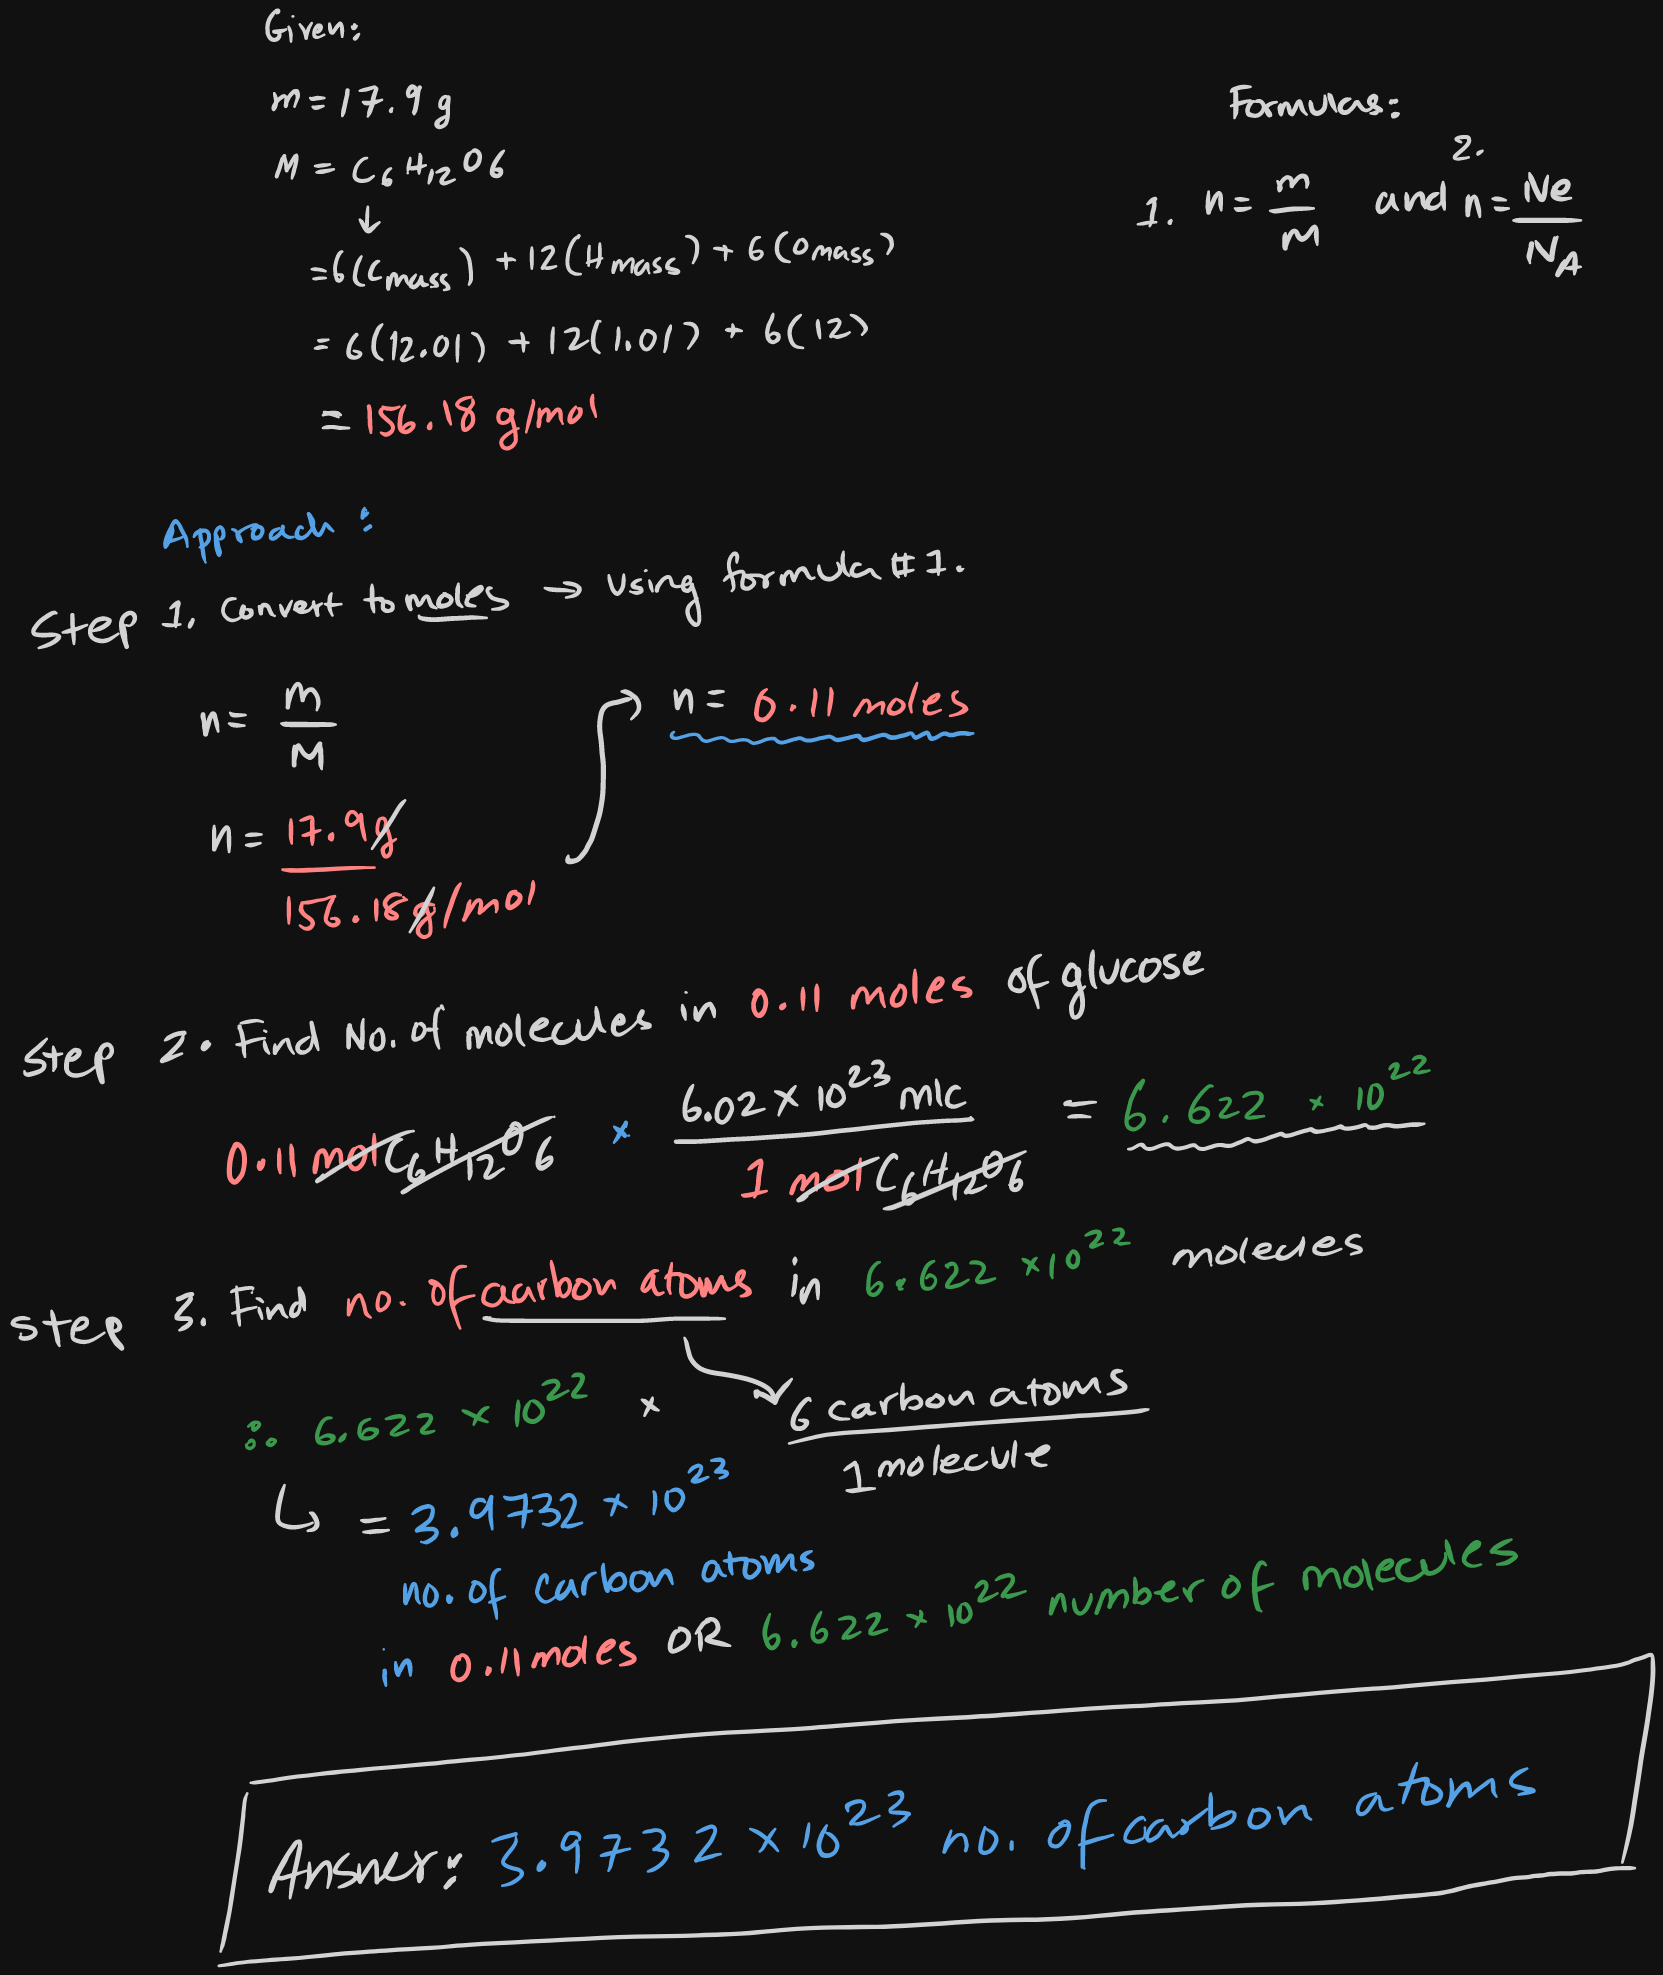 Given:
m = 17.9 g
M = C6H12O6
↓
= 6(Cmass) + 12(Hmass) + 6(Omass)
= 6(12.01) + 12(1.01) + 6(12)
= 156.18 g/mol
Formulas:
1. n = m/M and 2. n = Ne/NA
Approach:
Step 1. Convert to moles → Using formula #1.
n = m/M
n = 17.9g/156.18g/mol
n = 0.11 moles
Step 2. Find No. of molecules in 0.11 moles of glucose
0.11 mol C6H12O6 × 6.02 × 10^23 mlc / 1 mol C6H12O6 = 6.622 × 10^22
Step 3. Find no. of caarbon atoms in 6.622 × 10^22 molecules
∴ 6.622 × 10^22 × 6 carbon atoms / 1 molecule
↳ = 3.9732 × 10^23
no. of carbon atoms
in 0.11 moles OR 6.622 × 10^22 number of molecules
Answer: 3.9732 × 10^23 no. of carbon atoms